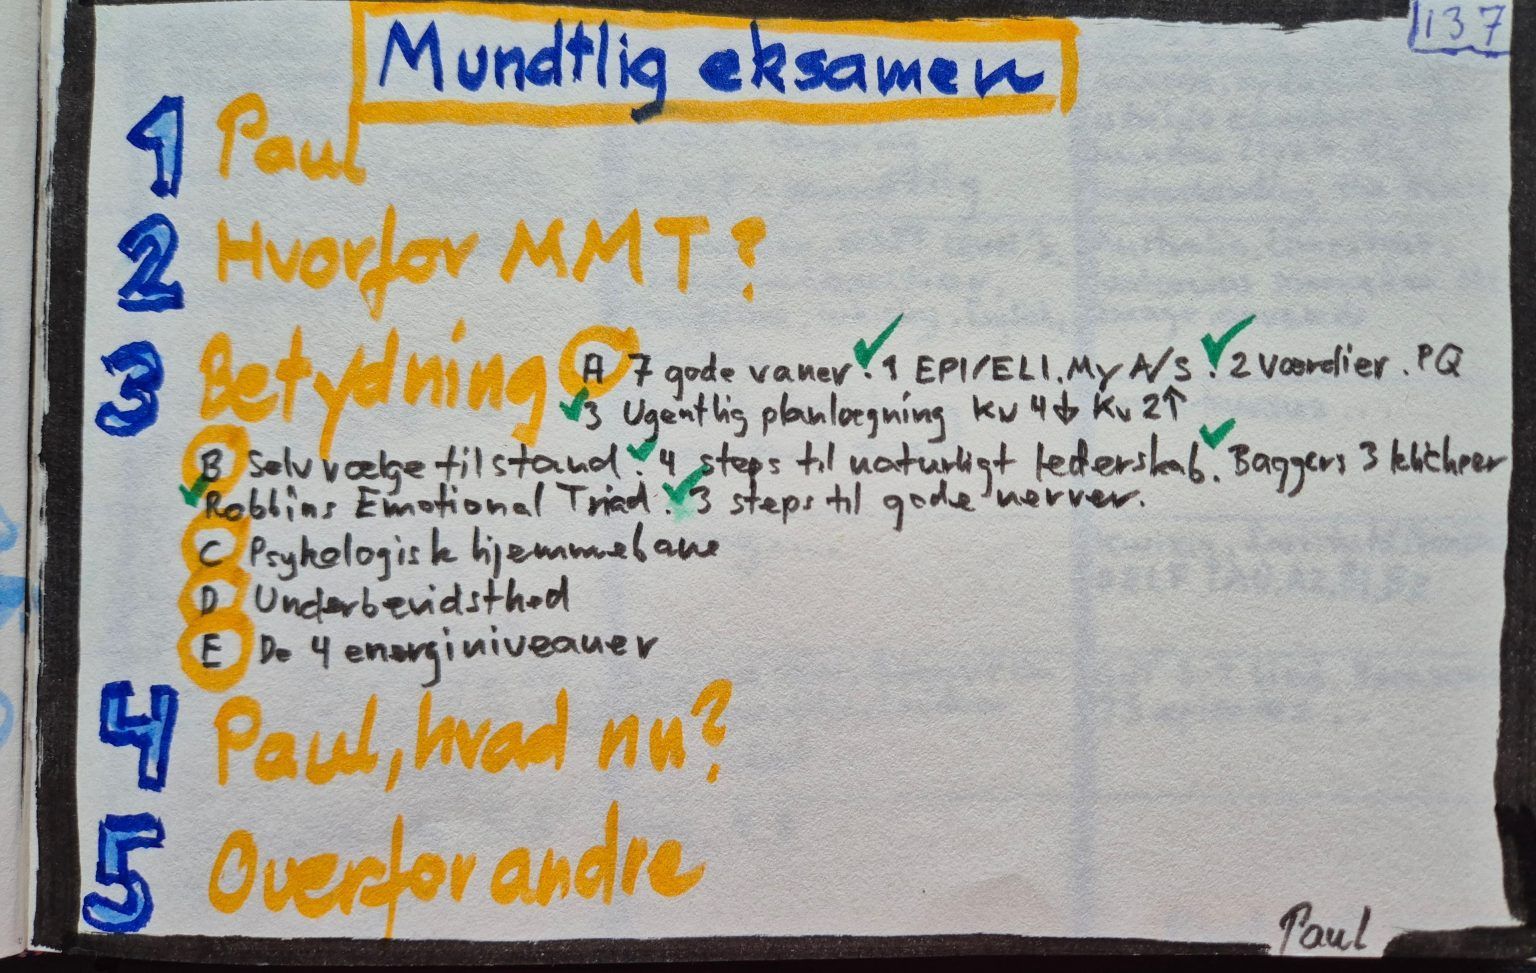 137
Mundtlig eksamen
1 Paul
2 Hvorfor MMT?
3 Betydning A 7 gode vaner. 1 EPI/ELI. My A/S. 2 Værdier. PQ
3 Ugentlig planlægning Kv 4↓ Kv 2↑
B Selvvælge tilstand. 4 steps til naturligt lederskab. Baggers 3 klicheer
Robbins Emotional Triad. 3 steps til gode nerver.
C Psykologisk hjemmebane
D Underbevidsthed
E De 4 energiniveauer
4 Paul, hvad nu?
5 Overfor andre
Paul